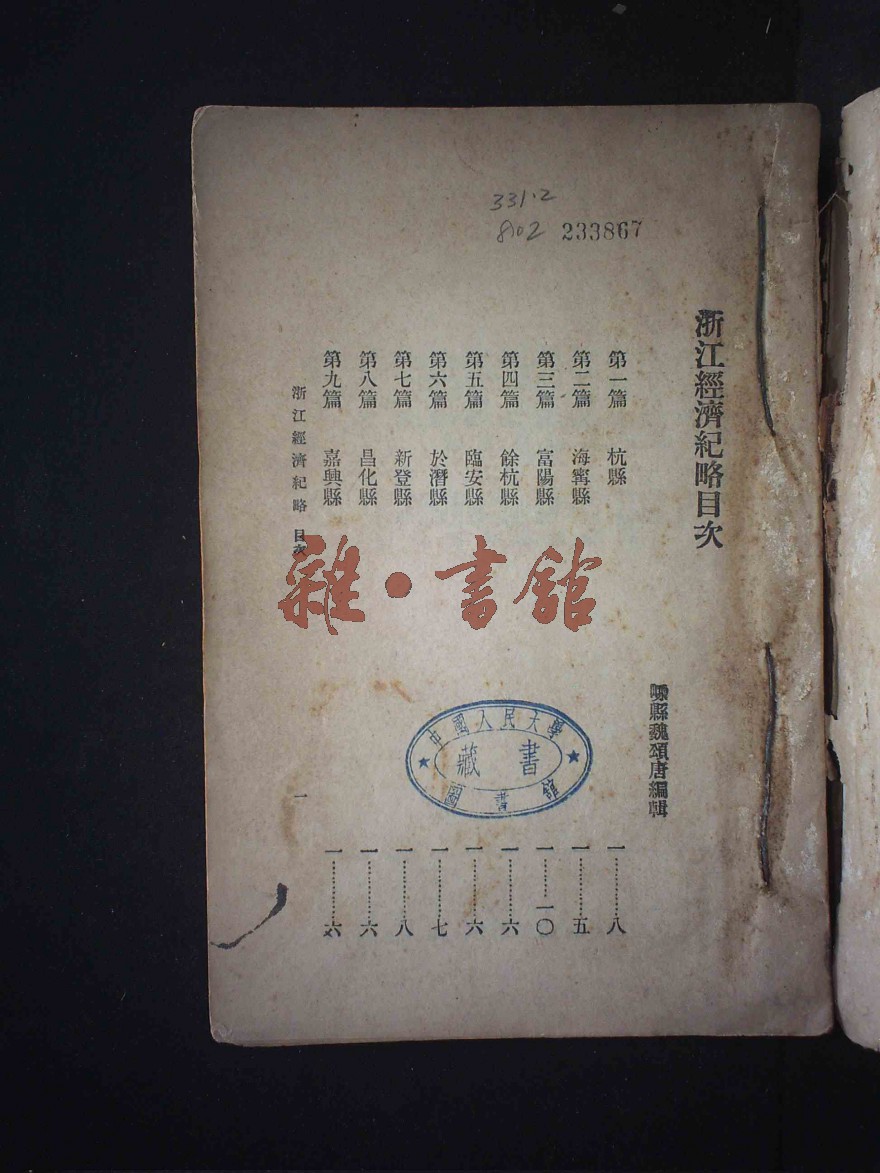 331.2
802 233867
浙江經濟紀略目次
嵊縣魏頌唐編輯
第一篇 杭縣 一…………八
第二篇 海寧縣 一…………五
第三篇 富陽縣 一………一〇
第四篇 餘杭縣 一…………六
第五篇 臨安縣 一…………六
第六篇 於潛縣 一…………七
第七篇 新登縣 一…………八
第八篇 昌化縣 一…………六
第九篇 嘉興縣 一…………六
浙江經濟紀略 目次 一
雜·書館
中國人民大學
藏書
圖書館